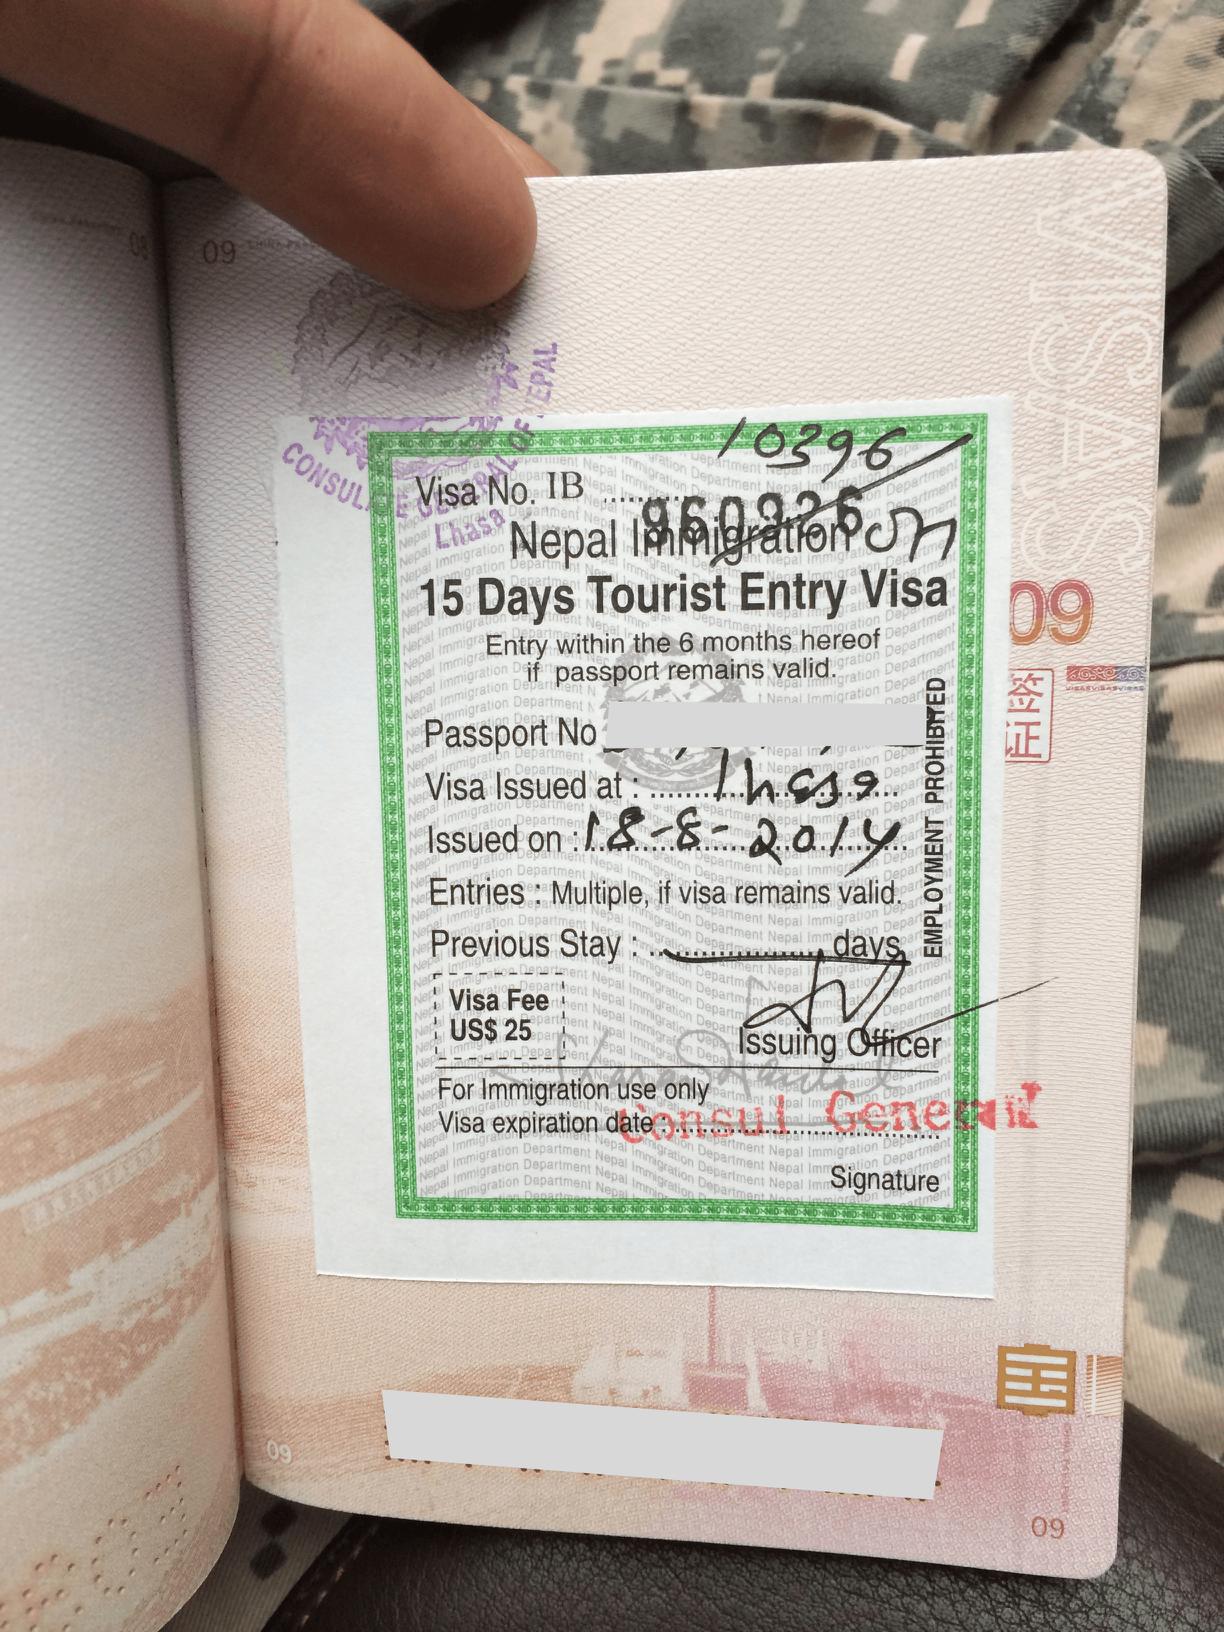 08
09
CONSULATE GENERAL OF NEPAL
Lhasa
10396
Visa No. IB 960326
Nepal Immigration
15 Days Tourist Entry Visa
Entry within the 6 months hereof
if passport remains valid.
Passport No
Visa Issued at : Lhasa
Issued on : 18-8-2014
Entries : Multiple, if visa remains valid.
Previous Stay : days
EMPLOYMENT PROHIBITED
Visa Fee
US$ 25
Issuing Officer
For Immigration use only
Visa expiration date :
Consul General
Signature
VISAS
09
签证
09
09